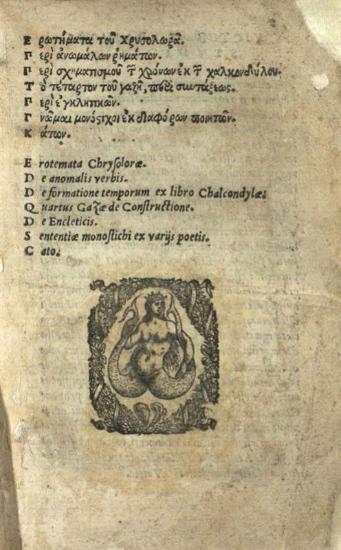 Ε ρωτήματα τοῦ Χρυσολωρᾶ.
Π ερὶ ἀνωμάλων ῥημάτων.
Π ερὶ σχηματισμοῦ τ͂ χρόνων ἐκ τ͂ χαλκονδύλου.
Τ ὸ τέταρτον τοῦ γαζῆ, περὶ συντάξεως.
Π ερὶ ἐγκλητικῶν.
Γ νῶμαι μονόστιχοι ἐκ διαφόρων ποιητῶν.
Κ άτων.

E rotemata Chrysoloræ.
D e anomalis verbis.
D e formatione temporum ex libro Chalcondylæ.
Q uartus Gazæ de Constructione.
D e Encleticis.
S ententiæ monostichi ex varijs poetis.
C ato.